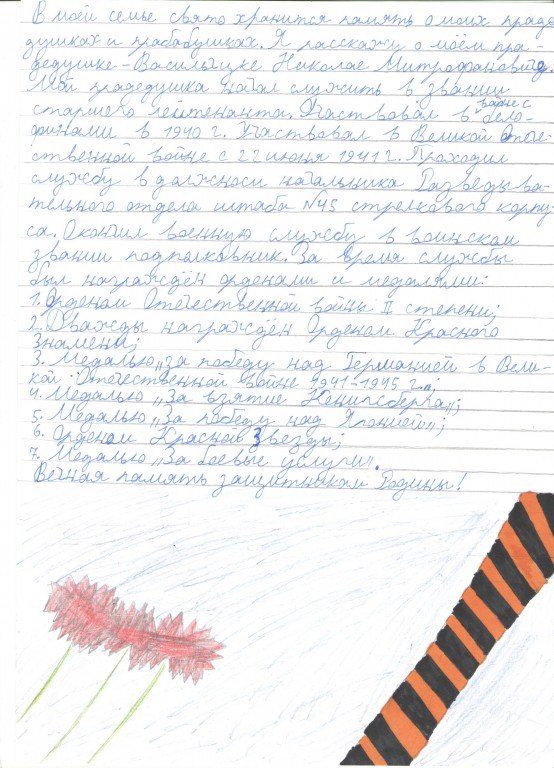 В моей семье свято хранится память о моих праде
душках и прабабушках. Я расскажу о моём пра-
дедушке - Васильцке Николае Митрофановиче.
Мой прадедушка начал служить в звании
старшего лейтенанта. Участвовал в войне с бело-
финнами в 1940 г. Участвовал в Великой Отече-
ственной войне с 22 июня 1941 г. Проходил
службу в должноси начальника Разведыва-
тельного отдела штаба №45 стрелкового корпу-
са. Окончил военную службу в воинском
звании подполковник. За время службы
был награждён орденами и медалями:
1. Орденом Отечественной войны II степени;
2. Дважды награждён Орденом Красного
Знамени;
3. Медалью „За победу над Германией в Вели-
кой Отечественной войне 1941-1945 г.„;
4. Медалью „За взятие Кенигсберга„;
5. Медалью „За победу над Японией„;
6. Орденом Красной Звезды;
7. Медалью „За боевые услуги".
Вечная память защитникам Родины!